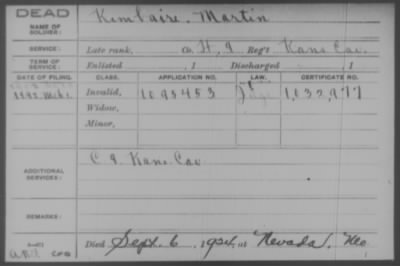 DEAD
NAME OF SOLDIER: Kimlaire, Martin
SERVICE: Late rank, Co. H, 9 Reg't Kans Cav.
TERM OF SERVICE: Enlisted , 1 Discharged , 1
DATE OF FILING. CLASS. APPLICATION NO. LAW. CERTIFICATE NO.
1892 Invalid, 1095453 1,032,977
Widow,
Minor,
ADDITIONAL SERVICES: C 9 Kans Cav
REMARKS:
Died Sept. 6, 1924, at Nevada, Mo